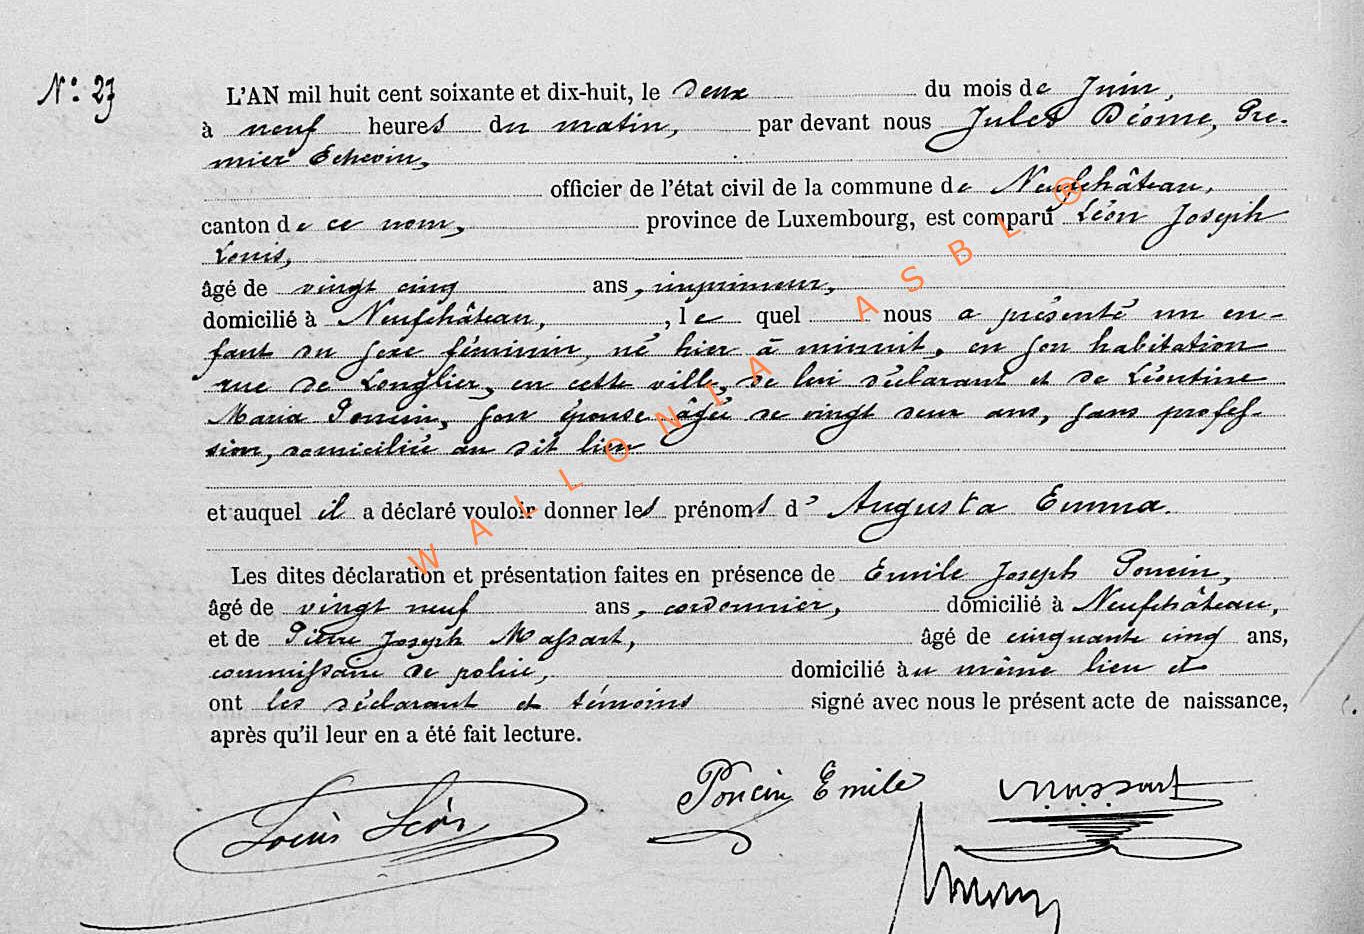 N° 27
L'AN mil huit cent soixante et dix-huit, le deux du mois de Juin,
à neuf heures du matin, par devant nous Jules Déome, Pre-
mier Echevin,
officier de l'état civil de la commune de Neufchâteau,
canton de ce nom, province de Luxembourg, est comparu Léon Joseph
Louis,
âgé de vingt cinq ans, imprimeur,
domicilié à Neufchâteau, , le quel nous a présenté un en-
fant du sexe féminin, né hier à minuit, en son habitation
rue de Longlier, en cette ville, de lui déclarant et de Léontine
Maria Poncin, son épouse âgée de vingt deux ans, sans profes-
sion, domiciliée au dit lieu
et auquel il a déclaré vouloir donner les prénoms d' Augusta Emma.
Les dites déclaration et présentation faites en présence de Emile Joseph Poncin,
âgé de vingt neuf ans, cordonnier, domicilié à Neufchâteau,
et de Pierre Joseph Massart, âgé de cinquante cinq ans,
commissaire de police, domicilié au même lieu et
ont les déclarant et témoins signé avec nous le présent acte de naissance,
après qu'il leur en a été fait lecture.
Louis Léon Poncin Emile Massart
WALLONIA ASBL ®